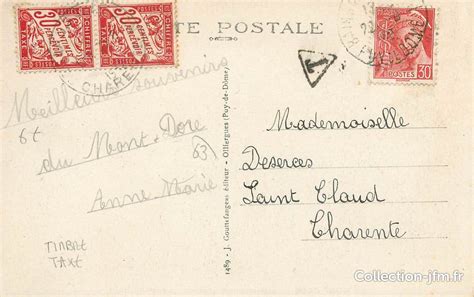 CARTE POSTALE
A PERCEVOIR
30
CENTIMES
CHIFFRE
TAXE
A PERCEVOIR
30
CENTIMES
CHIFFRE
TAXE
CHARE
T
POSTES 30
Meilleurs souvenirs
du Mont-Dore
Anne Marie
6t
63
TIMBRE
TAXE
1489 - J. Gouttefangeas éditeur - Olliergues (Puy-de-Dôme)
Mademoiselle
Deserces
Saint Claud
Charente
Collection-jfm.fr